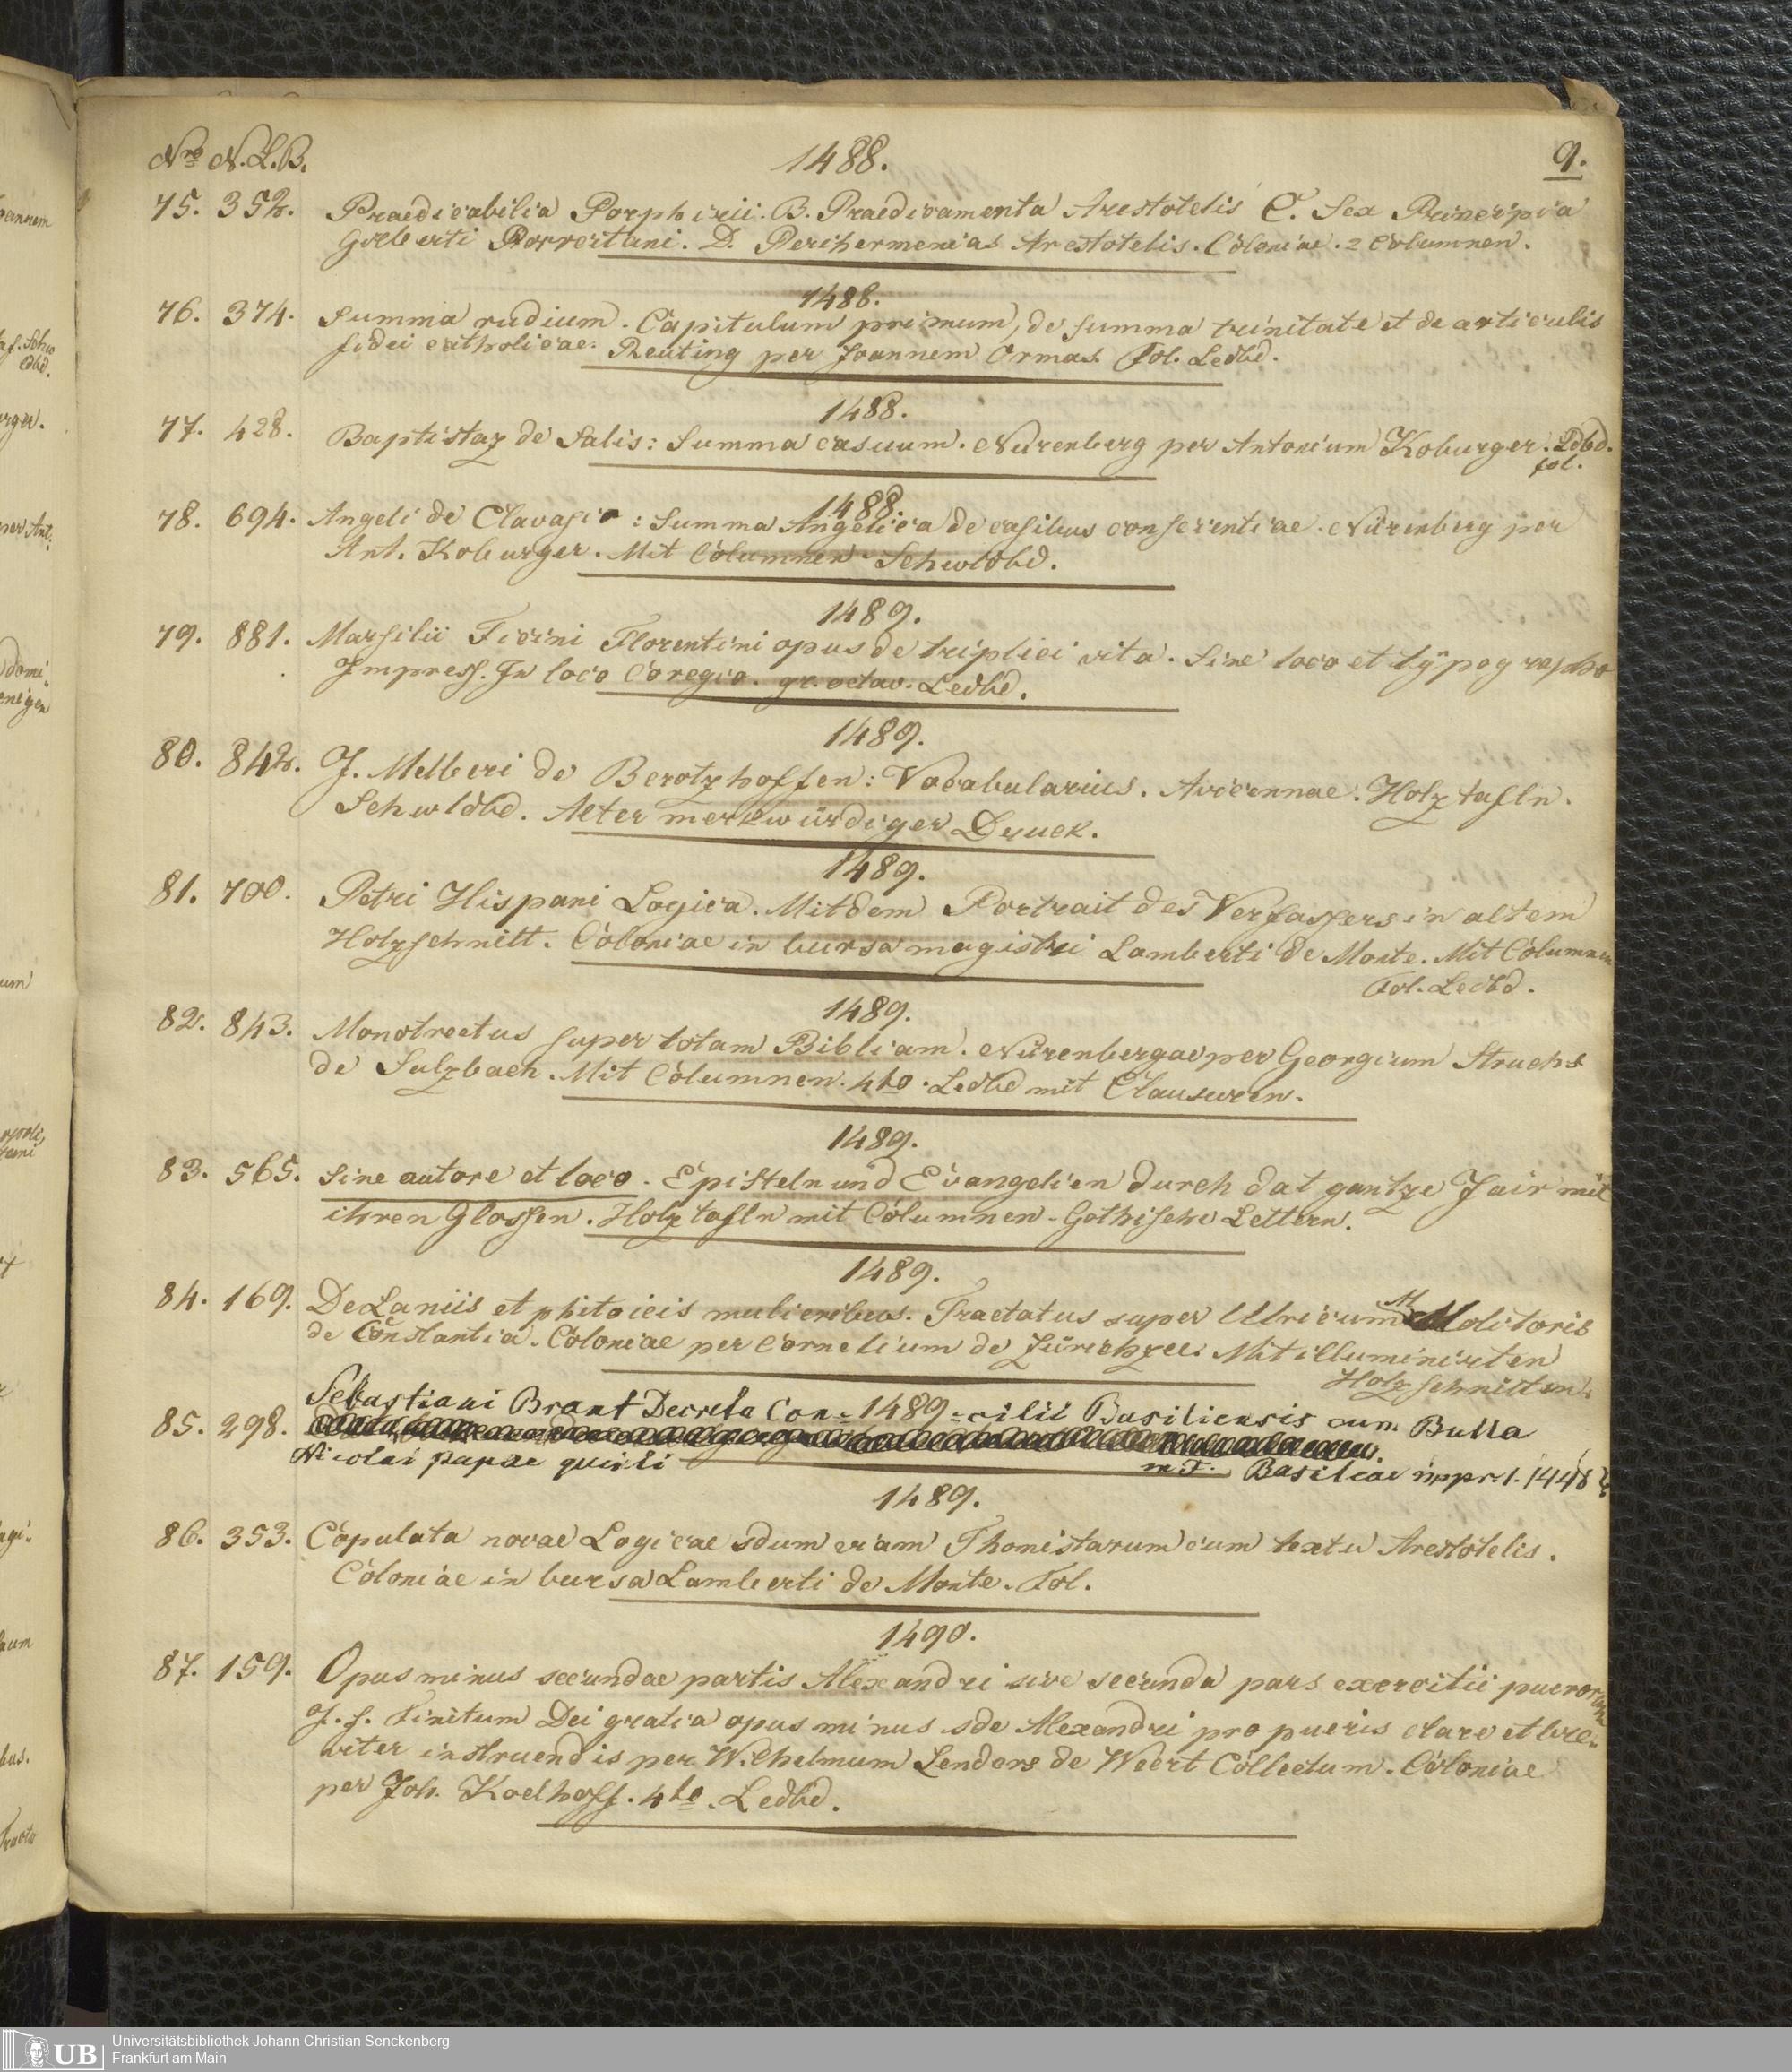 Nro N.L.B. 1488. 9.
75. 352. Praedicabilia Porphirii. B. Praedicamenta Arestotelis C. Sex Principia
Gilberti Porretani. D. Perihermenias Arestotelis. Coloniae. 2 Columnen.
1488.
76. 374. Summa rudium. Capitulum primum, de summa trinitate et de articulis
fidei catholicae. Reuting per Joannem Ormas. Fol. Ledbd.
1488.
77. 428. Baptistaz de Salis: Summa casuum. Nürenberg per Antonium Koburger. Ldbd.
fol.
1488.
78. 694. Angeli de Clavasio: Summa Angelica de casibus conscientiae. Nürenberg per
Ant. Koburger. Mit Columnen Schwldbd.
1489.
79. 881. Marsilii Ficini Florentini opus de triplici vita. Sine loco et typographo
Impress. In loco Coregio. gr. octav. Ledbd.
1489.
80. 842. J. Melberi de Gerotzhoffen: Vocabularius. Avicennae. Holztafln.
Schwldbd. Alter merkwürdiger Druck.
1489.
81. 700. Petri Hispani Logica. Mit dem Portrait des Verfassers in altem
Holzschnitt. Coloniae in bursa magistri Lamberti de Monte. Mit Columnen
Fol. Ledbd.
1489.
82. 843. Monotrectus super totam Bibliam. Nürenbergae per Georgium Struchs
de Sulzbach. Mit Columnen. 4to. Ledbd mit Clausuren.
1489.
83. 565. Sine autore et loco. Episteln und Evangelien durch dat gantze Jair mit
ihren Glossen. Holztafln mit Columnen - Gothische Lettern.
1489.
84. 169. De Laniis et phitoicis mulieribus. Tractatus super Ulricum M Molitoris
de Constantia. Coloniae per Cornelium de Zürichzee. Mit illuminirten
Holzschnitten.
85. 298. Sebastiani Brant Decreta Con= 1489 =cilii Basiliensis cum Bulla
Nicolai papae quinti m. F. Basileae impr. 1.
1489.
86. 353. Copulata novae Logicae sdum viam Thomistarum cum textu Arestotelis.
Coloniae in bursa Lamberti de Monte. Fol.
1490.
87. 159. Opus minus secundae partis Alexandri sive secunda pars exercitii puerorum
J. f. Finitum Dei gratia opus minus sde Alexandri pro pueris clare et bre=
viter instruendis per Wilhelmum Lenders de Weert Collectum. Coloniae
per Joh. Koelhoff. 4to. Ledbd.
UB Universitätsbibliothek Johann Christian Senckenberg
Frankfurt am Main